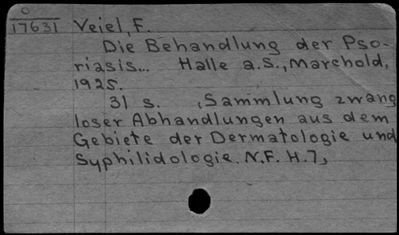 O
17631 Veiel, F.
Die Behandlung der Pso-
riasis... Halle a.S., Marchold,
1925.
31 s. (Sammlung zwang
loser Abhandlungen aus dem
Gebiete der Dermatologie und
Syphilidologie. N.F. H.7)